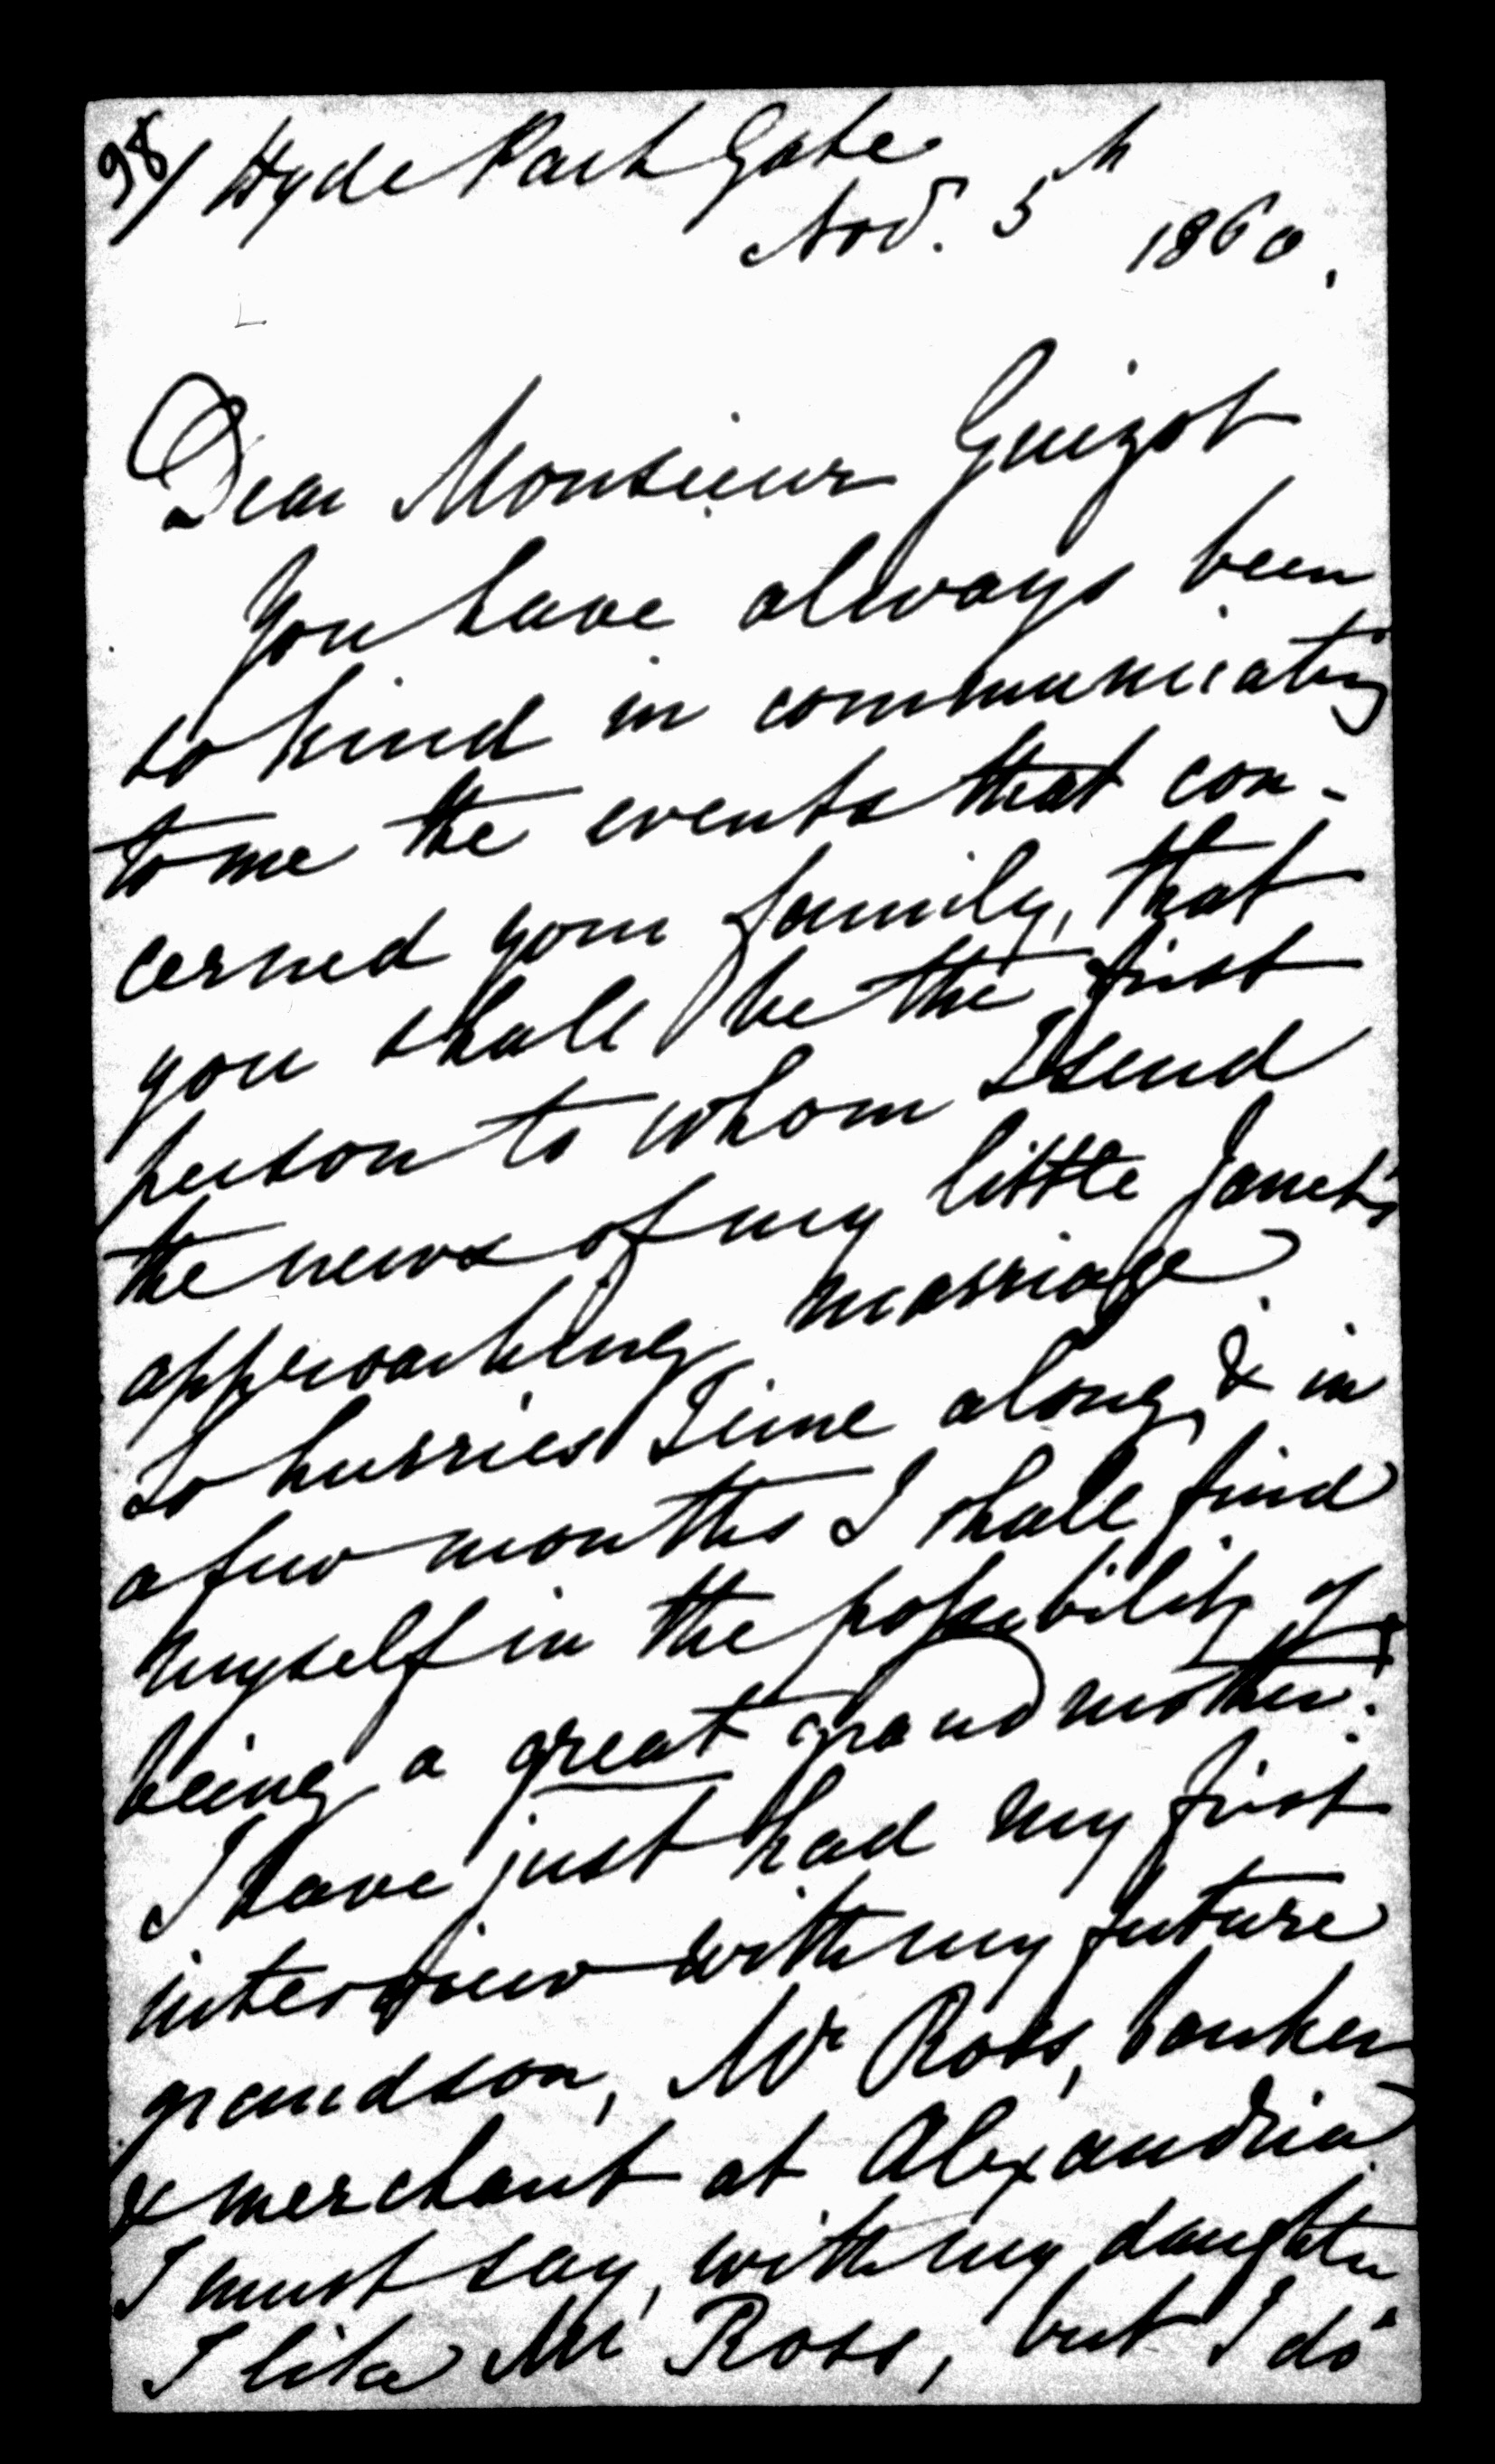 98/ Hyde Park Gate
Nov. 5th 1860.
Dear Monsieur Guizot
You have always been
so kind in communicating
to me the events that con-
cerned your family, that
you shall be the first
person to whom I send
the news of my little Janet's
approaching marriage.
So hurries Time along, & in
a few months I shall find
myself in the possibility of
being a great grandmother!
I have just had my first
interview with my future
grandson, Mr Ross, banker
& merchant at Alexandria.
I must say, with my daughter
I like Mr Ross, but I do